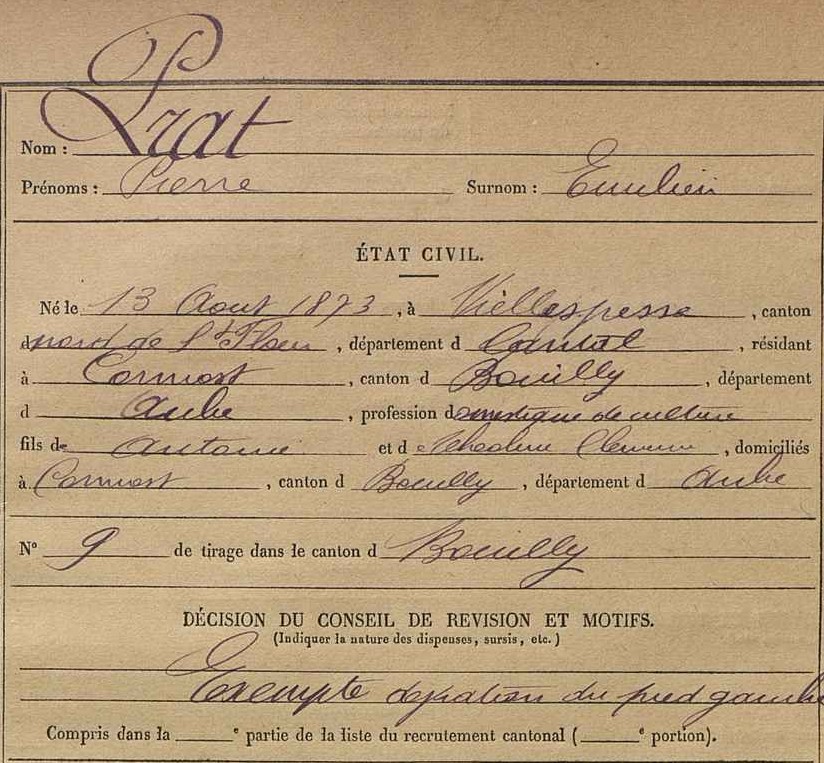 Nom : Prat
Prénoms : Pierre Surnom : Emilien
ÉTAT CIVIL.
Né le 13 Aout 1873, à Viellespesse, canton
d nord de St Flour, département d Cantal, résidant
à Cormost, canton d Bouilly, département
d Aube, profession domestique de culture
fils de Antoine et d , domiciliés
à Cormost, canton d Bouilly, département d Aube
N° 9 de tirage dans le canton d Bouilly
DÉCISION DU CONSEIL DE REVISION ET MOTIFS.
(Indiquer la nature des dispenses, sursis, etc.)
Exempté déviation du pied gauche
Compris dans la e partie de la liste du recrutement cantonal ( e portion).